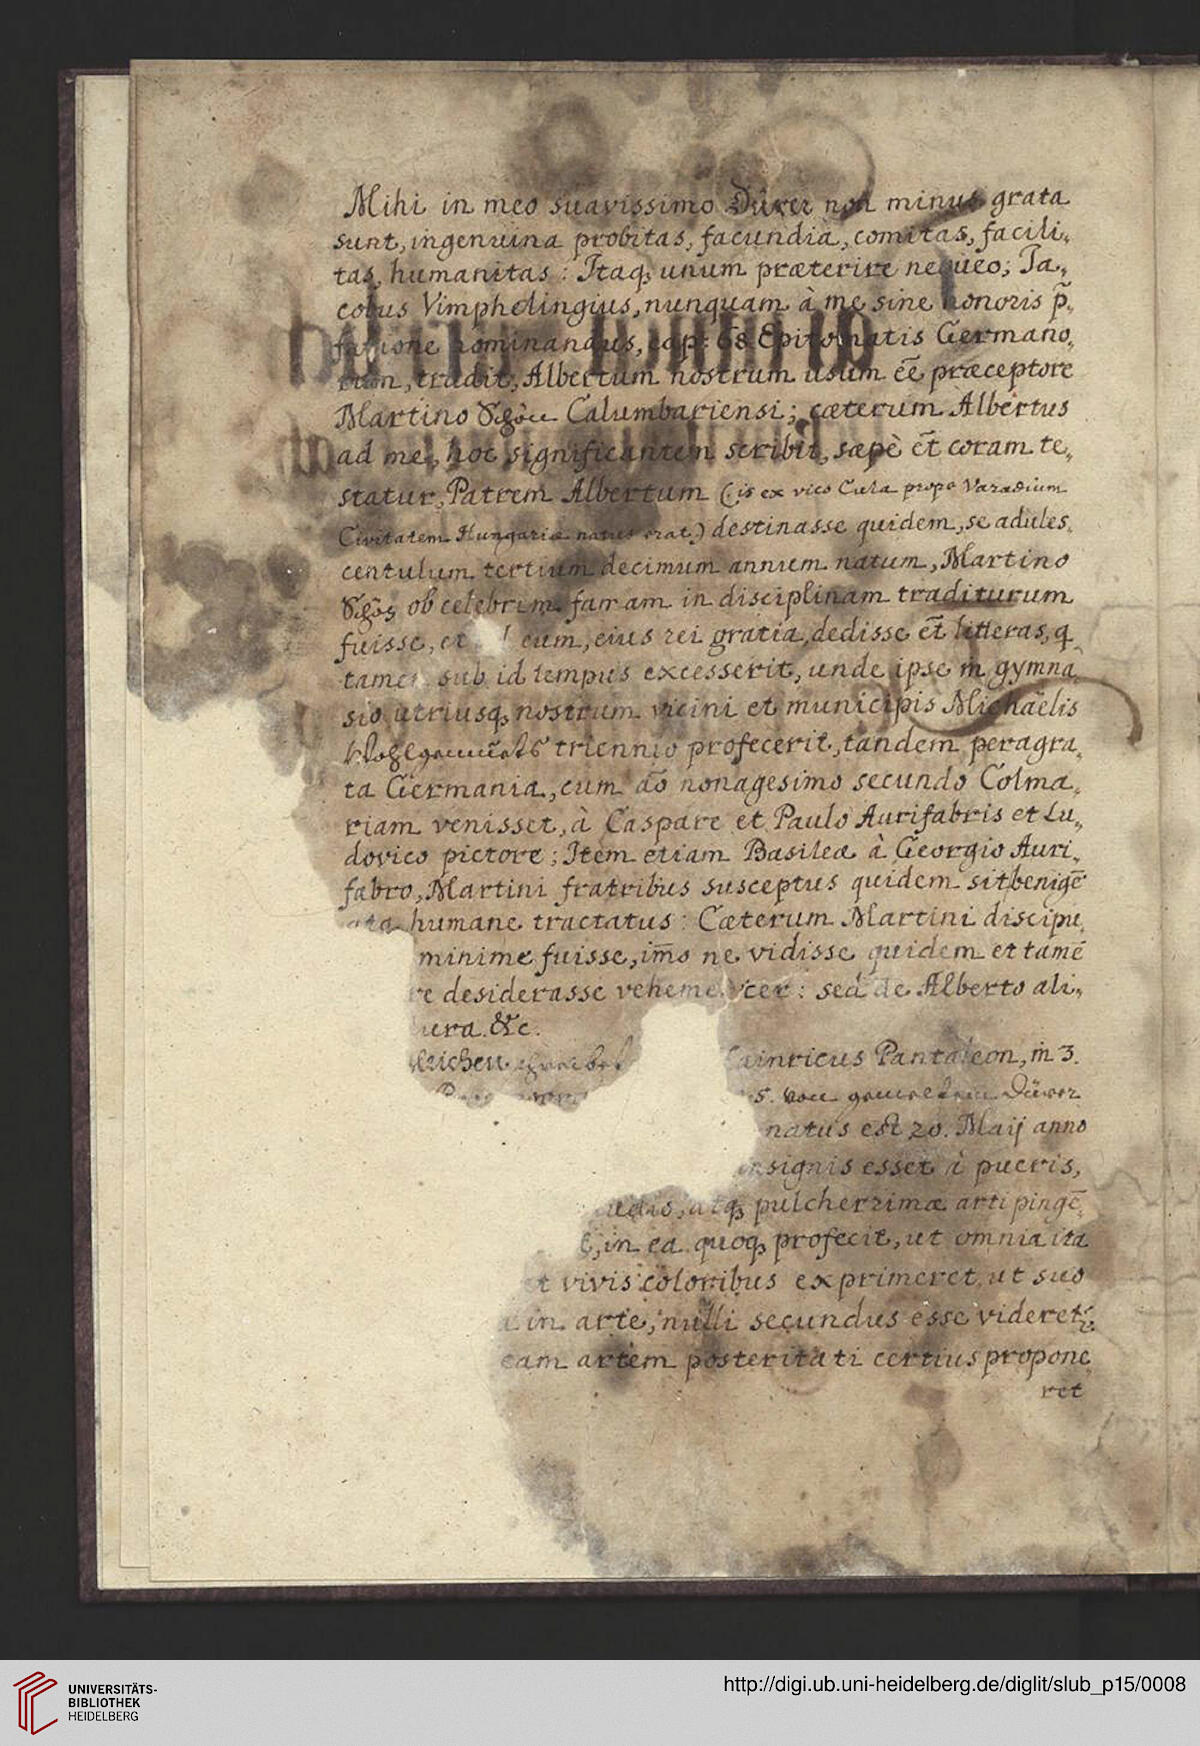 Mihi in meo suavissimo Dürer non minus grata
sunt, ingenuina probitas, facundia, comitas, facili,,
tas, humanitas: Itaq, unum præterire nequeo; Ja,,
cobus Vimphelingius, nunquam à me sine honoris p̃,
fatione nominandus, cap: 68 Epitomatis Germano,,
rum, tradit, Albertum nostrum usum eẽ præceptore
Martino Schön Calumbariensi; cæterum Albertus
ad me, hoc significantem scribit, sæpè et̃ coram te,,
statur, Patrem Albertum (is ex vico Cula prope Varadium
Civitatem Hungariæ natus erat) destinasse quidem, se adules,
centulum tertium decimum annum natum, Martino
Schön ob celebrem famam in disciplinam traditurum
fuisse, et eum, eius rei gratia, dedisse et̃ litteras, q
tamen sub id tempus excesserit, unde ipse in gymna,
sio utriusq, nostrum vicini et municipis Michaëlis
triennio profecerit, tandem peragra,,
ta Germania, cum ão nonagesimo secundo Colma,,
riam venisset, à Caspare et Paulo Aurifabris et Lu,,
dovico pictore; Item etiam Basileæ à Georgio Auri,,
fabro, Martini fratribus susceptus quidem sit benigẽ
humane tractatus: Cæterum Martini discipu,
minime fuisse, im̃o ne vidisse quidem et tamẽ
re desiderasse vehementer: sed de Alberto ali,,
ura &c.
ainricus Pantaleon, in 3.
5. von Dürer
natus est 20. Maij anno
nsignis esset à pueris,
udio, atq, pulcherrimæ arti pingẽ,
t, in ea quoq, profecit, ut omnia ita
et vivis coloribus exprimeret, ut suo
in arte, nulli secundus esse videret
eam artem posteritati certius propone,
ret
UNIVERSITÄTS-
BIBLIOTHEK
HEIDELBERG
http://digi.ub.uni-heidelberg.de/diglit/slub_p15/0008